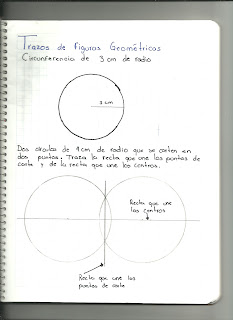 Trazos de Figuras Geométricas
Circunferencia de 3 cm de radio
3 cm
Dos círculos de 4 cm de radio que se corten en
dos puntos. Traza la recta que une los puntos de
corte y de la recta que une los centros.
Recta que une
los centros
Recta que une los
puntos de corte